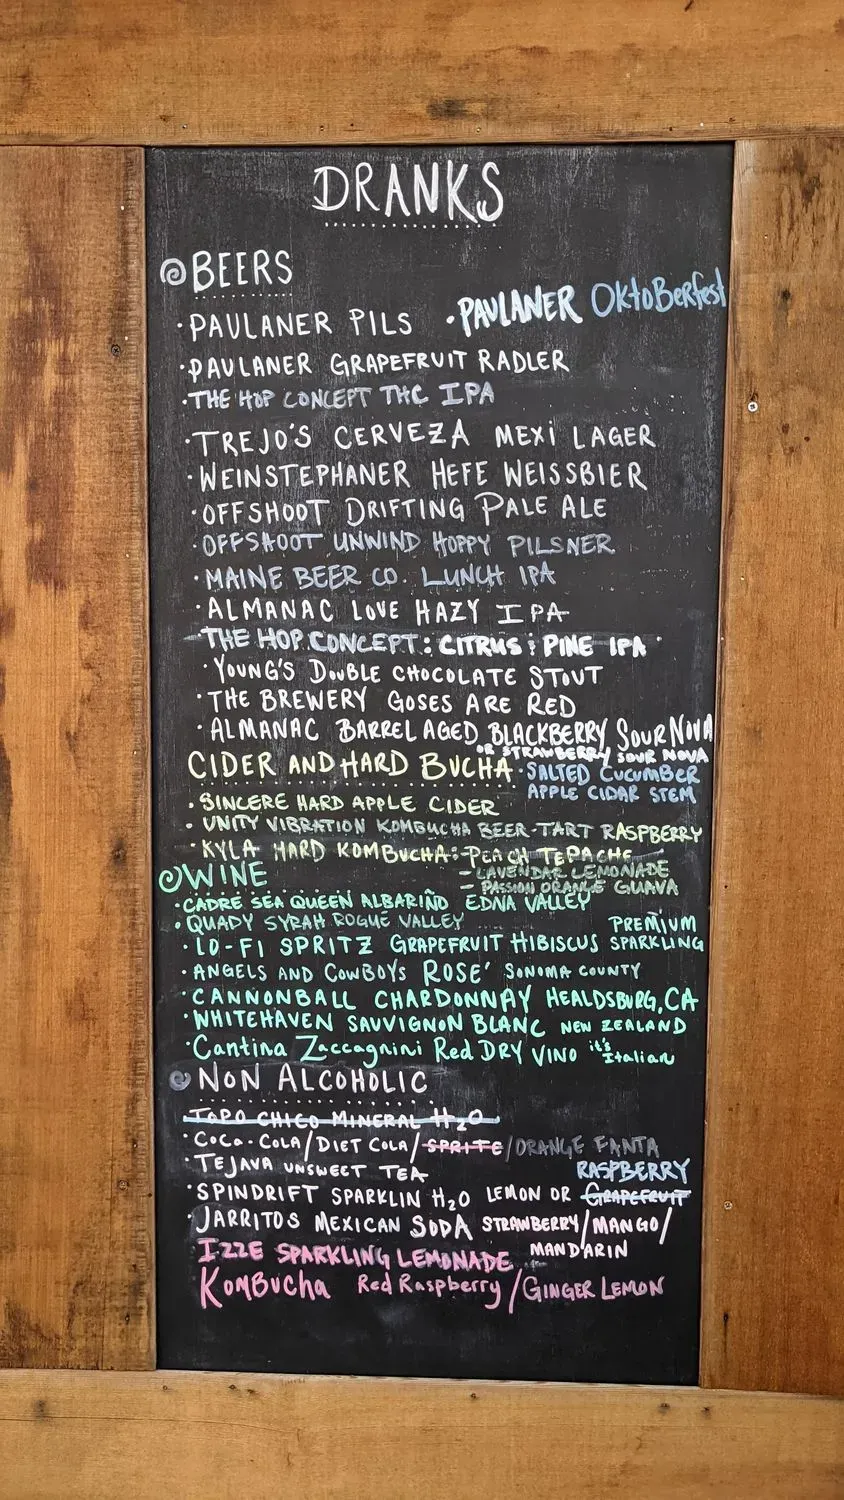 DRANKS
BEERS
· PAULANER PILS · PAULANER OKtoBerfest
· PAULANER GRAPEFRUIT RADLER
· THE HOP CONCEPT THC IPA
· TREJO'S CERVEZA MEXi LAGER
· WEINSTEPHANER HEFE WEISSBIER
· OFFSHOOT DRIFTING PALE ALE
· OFFSHOOT UNWIND HOPPY PILSNER
· MAINE BEER CO. LUNCH IPA
· ALMANAC LOVE HAZY IPA
THE HOP CONCEPT: CITRUS & PINE IPA
· YOUNG'S DOUBLE CHOCOLATE STOUT
· THE BREWERY GOSES ARE RED
· ALMANAC BARREL AGED BLACKBERRY SOUR NOVA
OR STRAWBERRY SOUR NOVA
CIDER AND HARD BUCHA · SALTED CUCUMBER
APPLE CIDAR STEM
· SINCERE HARD APPLE CIDER
· UNITY VIBRATION KOMBUCHA BEER-TART RASPBERRY
· KYLA HARD KOMBUCHA: - PEACH TEPACHE
- LAVENDAR LEMONADE
- PASSION ORANGE GUAVA
WINE
· CADRE SEA QUEEN ALBARIÑO EDNA VALLEY
· QUADY SYRAH ROGUE VALLEY
PREMIUM
· LO-FI SPRITZ GRAPEFRUIT HIBISCUS SPARKLING
· ANGELS AND COWBOYS ROSE' SONOMA COUNTY
· CANNONBALL CHARDONNAY HEALDSBURG, CA
· WHITEHAVEN SAUVIGNON BLANC NEW ZEALAND
· Cantina Zaccagnini Red DRY VINO it's Italian
NON ALCOHOLIC
TOPO CHICO MINERAL H₂O
· COCA-COLA/DIET COLA/SPRITE/ORANGE FANTA
· TEJAVA UNSWEET TEA RASPBERRY
· SPINDRIFT SPARKLIN H₂O LEMON OR GRAPEFRUIT
· JARRITOS MEXICAN SODA STRAWBERRY/MANGO/
MANDARIN
IZZE SPARKLING LEMONADE
KOMBUCHA Red Raspberry/GINGER LEMON